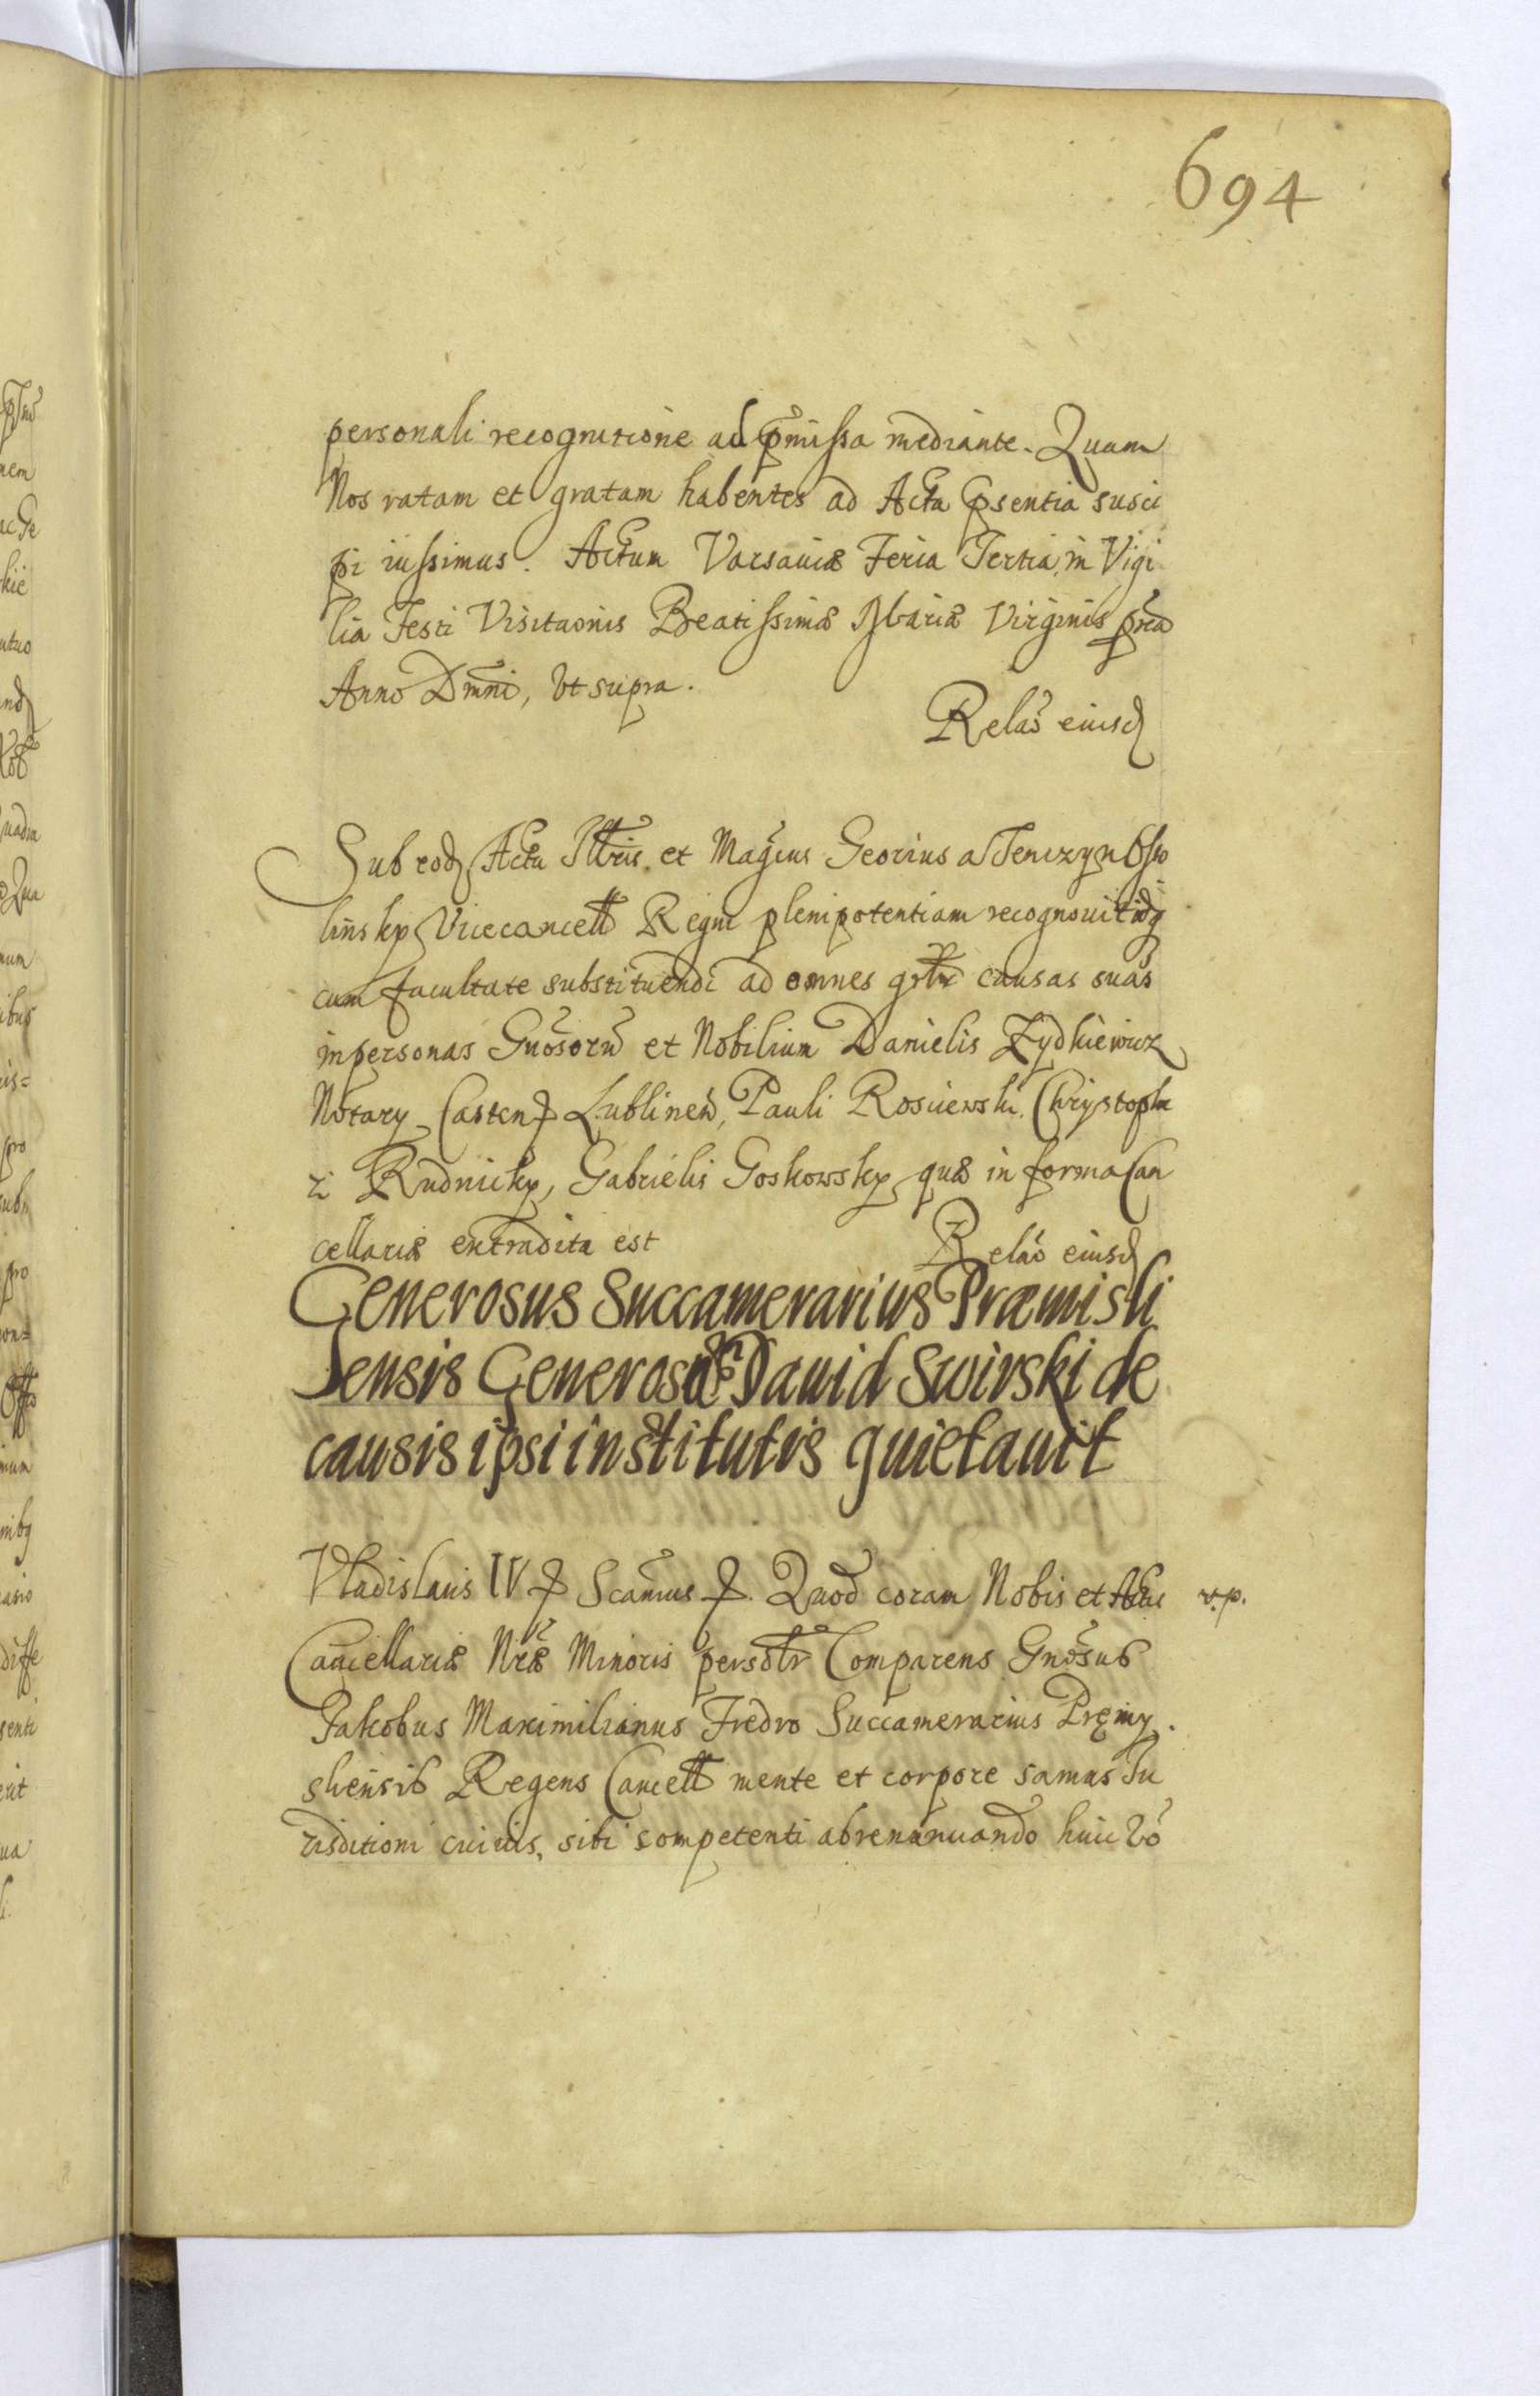 694
personali recognitione ad pmissa mediante. Quam
Nos ratam et gratam habentes ad Acta psentia susci
pi iussimus. Actum Varsaviæ Feria Tertia in Vigi
lia Festi Visitaonis Beatissimæ Mariæ Virginis
Anno Dmni, vt supra.
Relao eiusd
Sub eod Actu Illris et Magcus Georius a Tenczyn Osso
linsky Vicecancell Regni plenipotentiam recognouit idq
cum facultate substituendi ad omnes grlr causas suas
in personas Gnosorũ et Nobilium Danielis Zydkiewicz
Notary Castren Lublinen, Pauli Rosciewski, Chrystopho
ri Rudnicky, Gabrielis Goskowsky quæ in forma Can
cellariæ extradita est
Relao eiusd
Generosus Succamerarius Præmisli
ensis Generosũ Dauid Swirski de
causis ipsi institutis quietauit
Vladislaus IV Scamus Quod coram Nobis et Actis
v.p.
Cancellariæ Nræ Minoris persolr Comparens Gnosus
Jakobus Maximilianus Fredro Succamerarius Pręmy
sliensis Regens Cancell mente et corpore sanus Ju
risditioni cuiuis, sibi competenti abrenunuando huic vo